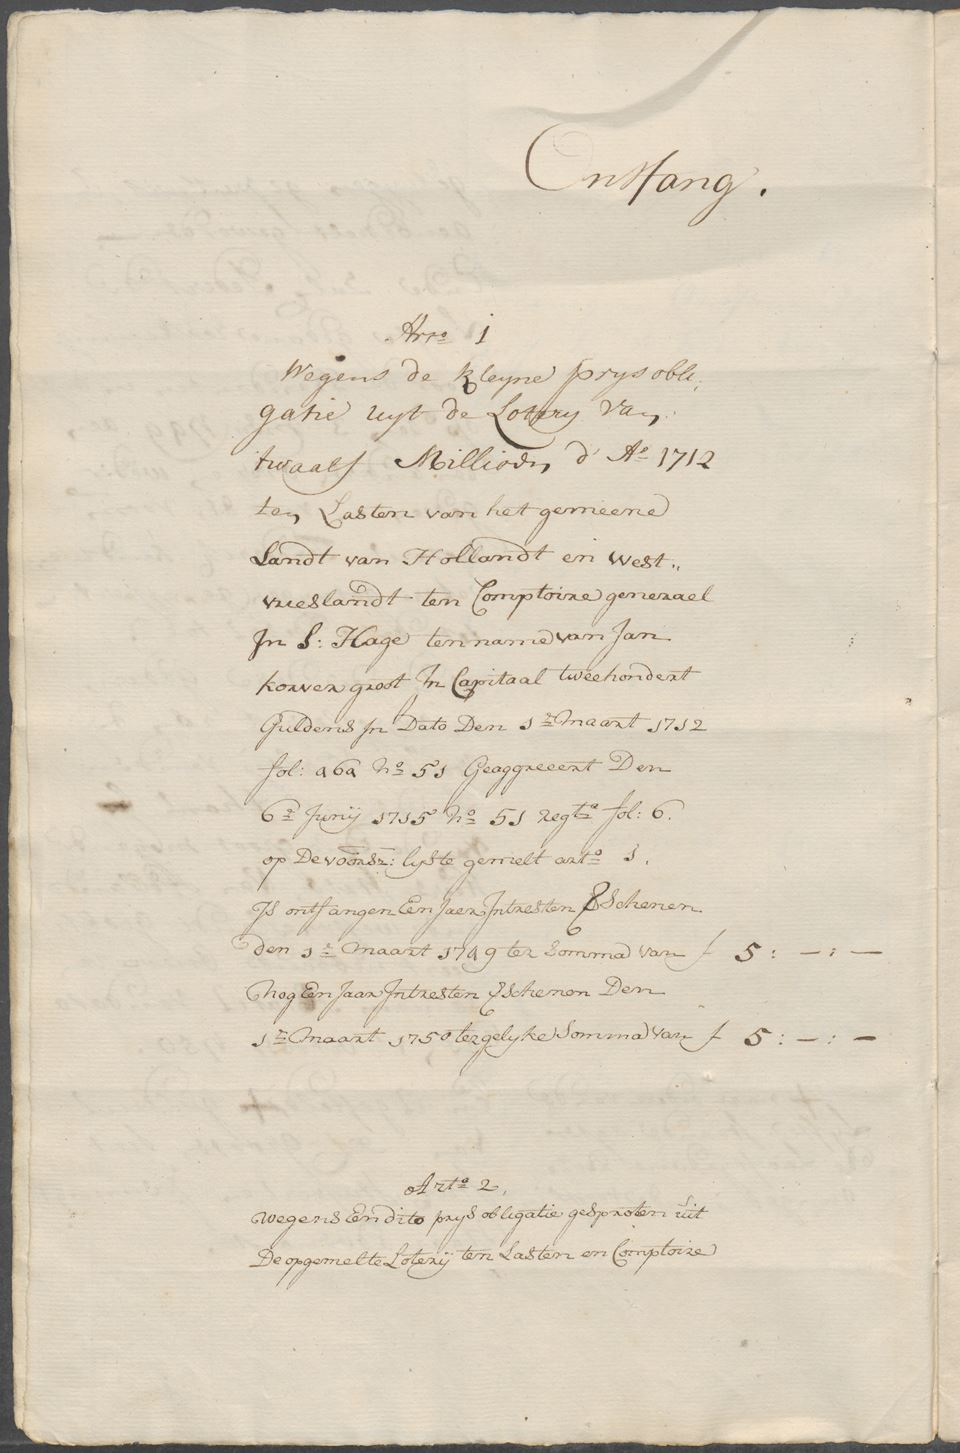 Ontfang.
Arto. 1
Wegens de kleyne prys obli,
gatie uyt de Lotery van
twaalf Millioen d' Ao. 1712
ten Lasten van het gemeene
Landt van Hollandt en west,,
vrieslandt ten Comptoire generael
In S: Hage ten name van Jan
korver groot In Capitaal tweehondert
Guldens In Dato Den 1e maart 1712
fol: No. 51 Geaggreeert Den
6e Junij 1715 No. 51 regto fol: 6.
op De voorsz: lyste gemelt arto. 1.
Is ontfangen Een Jaer Intresten Schenen
den 1e maart 1749 ter Somma van f 5:—:—
Nog Een Jaar Intresten Schenen Den
1e maart 1750 ter gelyke Somma van f 5:—:—
Arto. 2.
Wegens Een dito prys obligatie gesproten uit
De opgemelte Loterij ten Lasten en Comptoire